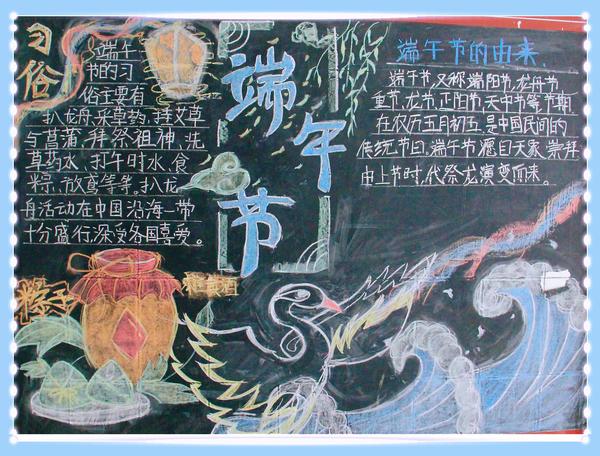 习俗
端午
节的习
俗主要有
扒龙舟、采草药、挂艾草
与菖蒲、拜祭祖神、洗
草药水、打午时水、食
粽、放鸢等等。扒龙
舟活动在中国沿海一带
十分盛行,深受各国喜爱。
端午节
端午节的由来
端午节,又称端阳节,龙舟节,
重节,龙节,正阳节,天中节等,节期
在农历五月初五,是中国民间的
传统节日,端午节源自天象崇拜
由上古时代祭龙演变而来。
粽子
雄黄酒